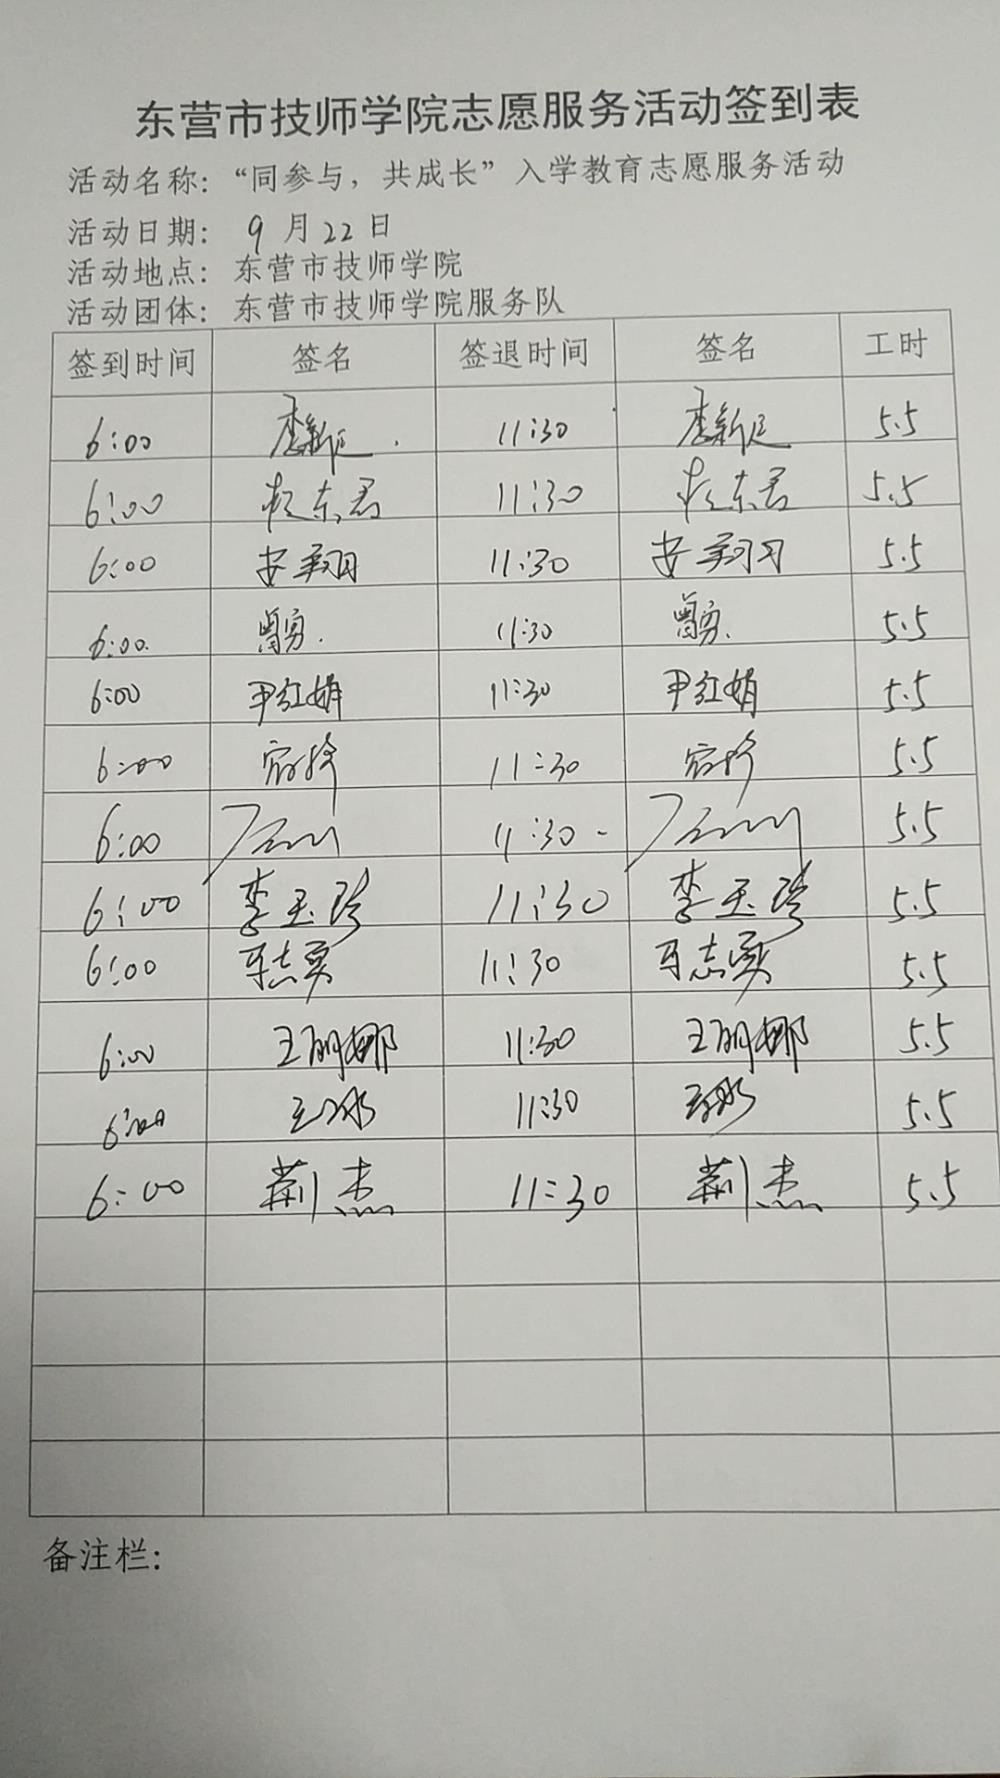 东营市技师学院志愿服务活动签到表
活动名称：“同参与，共成长”入学教育志愿服务活动
活动日期： 9 月 22 日
活动地点： 东营市技师学院
活动团体： 东营市技师学院服务队
签到时间 签名 签退时间 签名 工时
6:00 11:30 5.5
6:00 11:30 5.5
6:00 安翔 11:30 安翔 5.5
6:00. 曾勇. 11:30 曾勇. 5.5
6:00 尹红娟 11:30 尹红娟 5.5
6:00 11:30 5.5
6:00 11:30 5.5
6:00 李玉珍 11:30 李玉珍 5.5
6:00 11:30 5.5
6:00 王明娜 11:30 王明娜 5.5
6:00 11:30 5.5
6:00 荆杰 11:30 荆杰 5.5
备注栏：